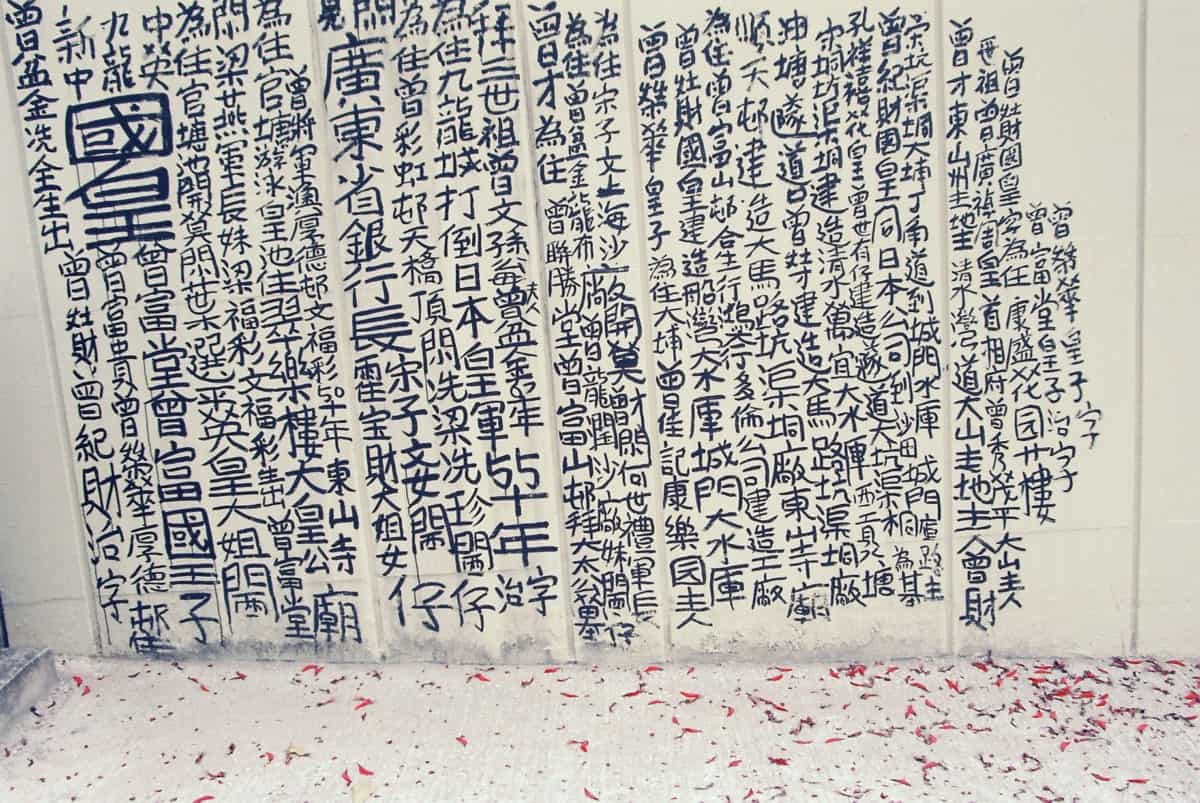 曾榮華皇子字
曾富堂皇子治字
曾灶財國皇字為住康盛花园廿樓
世祖曾廣禎周皇首相府曾秀茂平大山主人
曾才東山州土地主清水灣道大山主地主人曾財
宋坑渠垌大埔丁角道到城門水庫城門庫路主
曾紀財國皇同日本公司到沙田大坑渠桐為墓
孔祥禧花皇曾也有仔建造遂道大坑渠桐
宋垌坑渠垌建造清水萬宜大水庫西貢塘
油塘隧道曾才建造大馬路登坑渠垌廠
順天邨建造大馬路坑渠垌廠東山寺廟
為住曾富山邨合生行多倫公司建造工廠
曾灶財國皇建造船灣大水庫城門大水庫
曾榮華皇子為住大埔曾佳記康樂园主人
為住宋子文上海沙廠開莫才閑何世禮軍長
為住曾盆金龍布廠曾龍閏沙廠妹閑仔
曾才為住曾勝堂曾富山邨拜太公墓
拜三世祖曾文孫每曾盆金年55十年治字
為住九龍城打倒日本皇軍
為住曾彩虹邨天橋頂閑冼梁冼珍閑仔
廣東省銀行長霍宝財大姐女仔
宋子文閑
為住官塘游泳皇池住翠樂樓大皇公廟
曾將軍澳厚德邨文福彩50十年東山寺
閑梁廿燕軍長妹梁福彩文福彩生出曾富堂
為住官塘池開莫閑世采選平英皇大姐閑
中英國皇曾富堂曾富國王子
九龍
新中
曾富貴曾榮華厚德邨住
曾盆金冼全生出曾灶財曾紀財治字